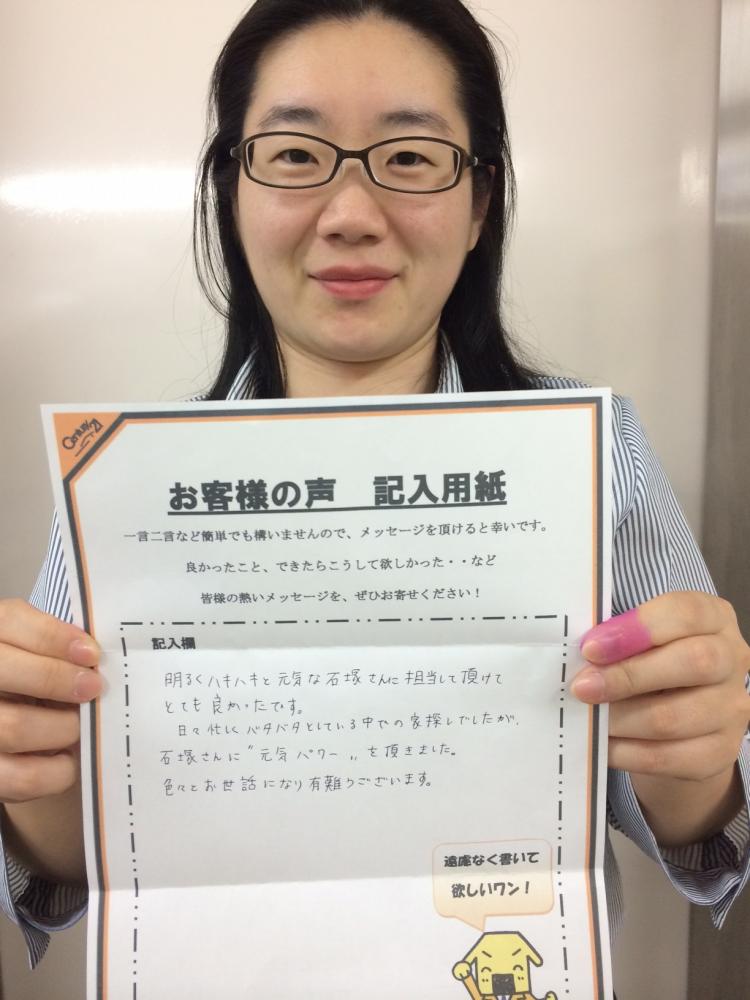 Century 21
お客様の声　記入用紙
一言二言など簡単でも構いませんので、メッセージを頂けると幸いです。
良かったこと、できたらこうして欲しかった・・など
皆様の熱いメッセージを、ぜひお寄せください！
記入欄
明るくハキハキと元気な石塚さんに担当して頂けて
とても良かったです。
日々忙しくバタバタとしている中での家探しでしたが、
石塚さんに〝元気パワー〟を頂きました。
色々とお世話になり有難うございます。
遠慮なく書いて
欲しいワン！